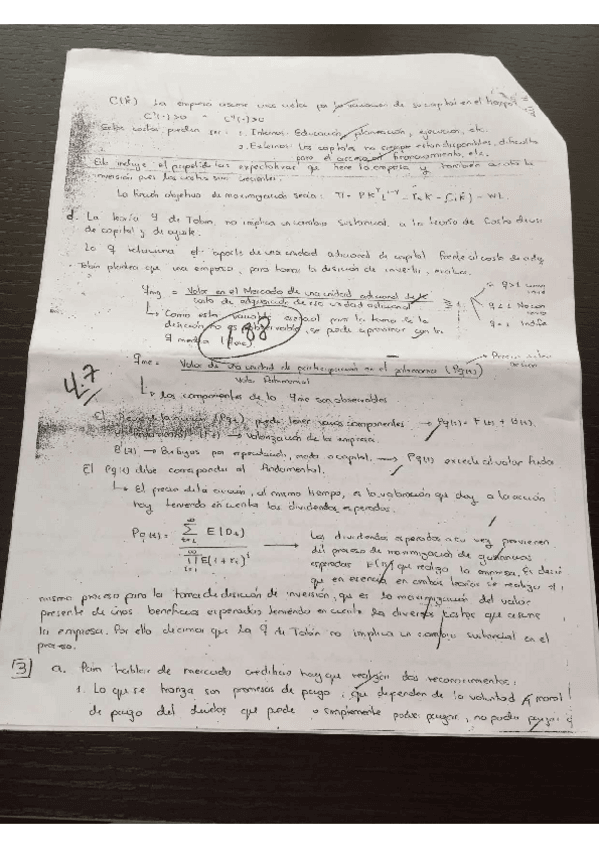 C(K̇) La empresa asume unos costos por la variación de su capital en el tiempo
C'(·)>0 C''(·)>0
Estos costos pueden ser: 1. Internos: Educación, planeación, ejecución, etc.
2. Externos: Los capitales no siempre están disponibles, dificulta
para el acceso al financiamiento, etc.
Ello incluye el papel de las expectativas que tiene la empresa y también
inversión pues los costos son crecientes.
La función objetivo de maximización sería: Π = PK L - K - C(K̇) - WL
d. La teoría q de Tobin, no implica un cambio sustancial a la teoría de Costo de uso
de capital y de ajuste.
La q relaciona el aporte de una unidad adicional de capital frente al costo de adq
Tobin plantea que una empresa, para tomar la decisión de invertir, evalúa:
qmg = Valor en el Mercado de una unidad adicional de K
costo de adquisición de esa unidad adicional
q>1
q<1 No
q=1
Como esta variable para la toma de la
decisión no es observable, se puede aproximar con la
q media (qme)
88
qme = Valor de una unidad de participación en el patrimonio (Pq(t))
Valor Patrimonial
4.7
Los componentes de la qme son observables
El de la acción (Pq t) puede tener varios componentes → Pq(t) = F(t) + B(t)
F(t) → valorización de la empresa.
B(t) → Burbujas por especulación, moda o capital. → Pq(t) excede el valor funda
El Pq(t) debe corresponder al fundamental.
El precio de la acción, al mismo tiempo, es la valoración que doy a la acción
hoy teniendo en cuenta los dividendos esperados.
Pq(t) = ∞ Σ t=1 E(Dt)
∞ Π i=1 E(1+r)
→ Los dividendos esperados a su vez provienen
del proceso de maximización de ganancias
esperadas E(Π) que realiza la empresa. Es decir
que en esencia en ambas teorías se realiza el
mismo proceso para la toma de decisión de inversión, que es la maximización del valor
presente de unos beneficios esperados teniendo en cuenta los diversos costos que asume
la empresa. Por ello decimos que la q de Tobin no implica un cambio sustancial en el
proceso.
3 a. Para hablar de mercado crediticio hay que realizar dos reconocimientos:
1. Lo que se tranza son promesas de pago, que dependen de la voluntad y moral
de pago del deudor que puede o simplemente poder pagar, no poder pagar o